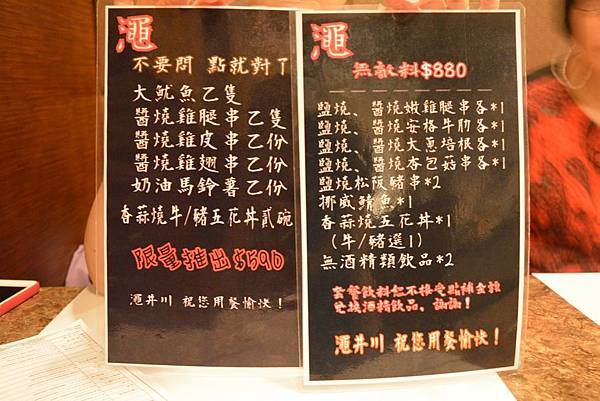 澠
不要問 點就對了
大魷魚乙隻
醬燒雞腿串乙隻
醬燒雞皮串乙份
醬燒雞翅串乙份
奶油馬鈴薯乙份
香蒜燒牛/豬五花丼貳碗
限量推出$590
澠井川 祝您用餐愉快!
澠
無敵料$880
鹽燒、醬燒嫩雞腿串各*1
鹽燒、醬燒安格牛肋各*1
鹽燒、醬燒大蔥培根各*1
鹽燒、醬燒杏包菇串各*1
鹽燒松阪豬串*2
挪威鯖魚*1
香蒜燒五花丼*1
(牛/豬選1)
無酒精類飲品*2
套餐飲料恕不接受點陣金額
兌換酒精飲品、謝謝!
澠井川 祝您用餐愉快!